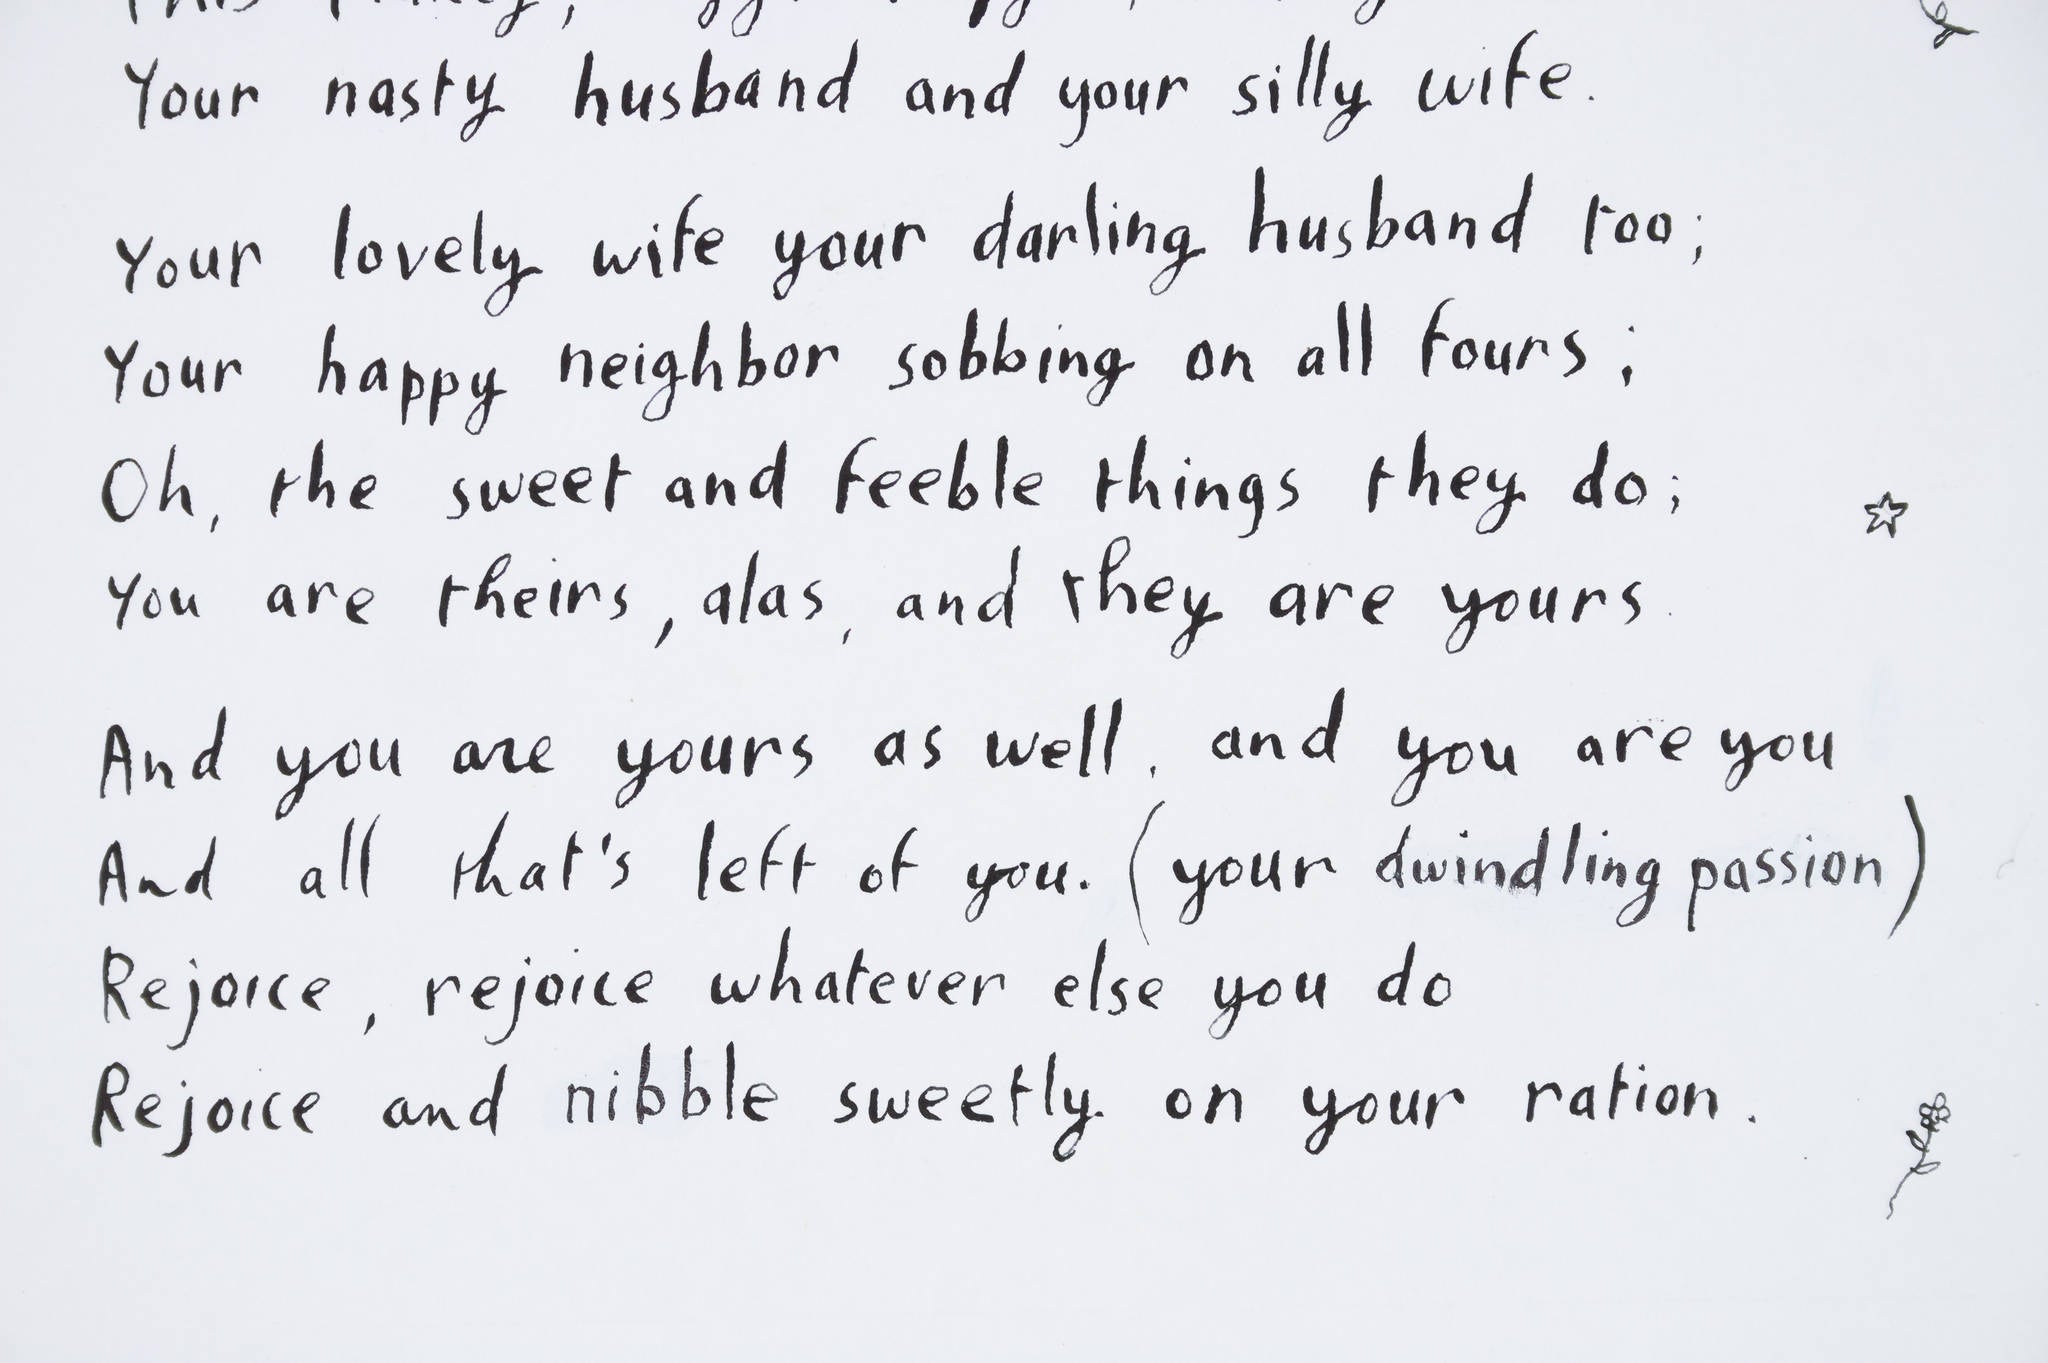 Your nasty husband and your silly wife.
Your lovely wife your darling husband too;
Your happy neighbor sobbing on all fours;
Oh, the sweet and feeble things they do;
You are theirs, alas, and they are yours.
And you are yours as well, and you are you
And all that's left of you. (your dwindling passion)
Rejoice, rejoice whatever else you do
Rejoice and nibble sweetly on your ration.